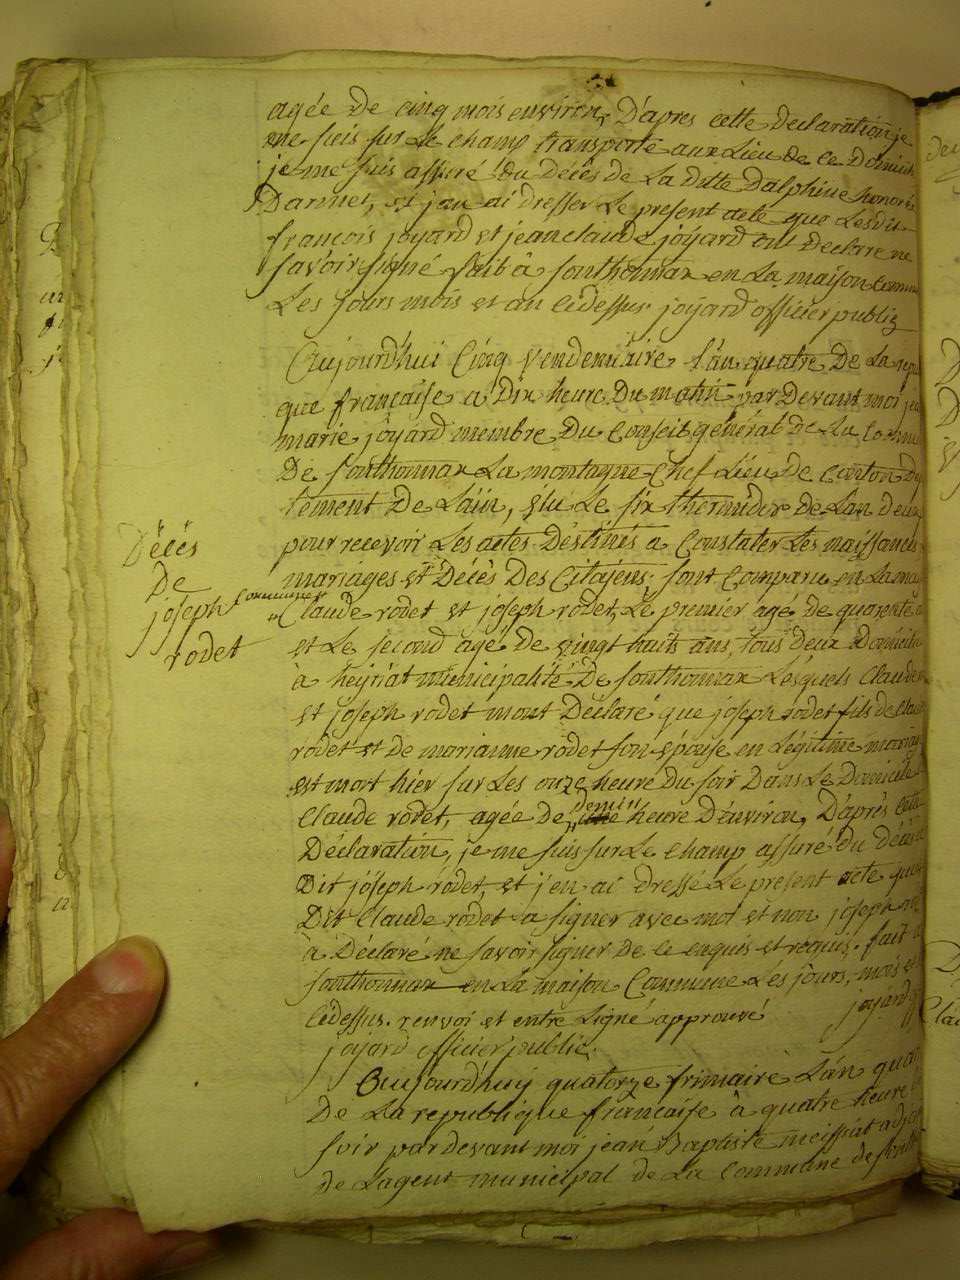 agée de cinq mois environ, D'apres cette declaration je
me suis sur Le champ transporté aux Lieu de ce Domicile
je me suis assuré du décès de La ditte Dalphine honorée
Dannet, et j'en ai dresser Le présent acte que Lesdit
françois joyard et jean claude joyard ont Declaré ne
savoir signé fait à sonthonnax en La maison commu
Les jours mois et an cidessus joyard officier public
Aujourd'hui Cinq Vendemiaire l'an quatre De La repu
que française a Dix heure Du matin par Devant moi jea
marie joyard membre Du Conseil général de La Commu
De sonthonnax La montagne Chef Lieu De Canton Dép
tement De L'ain, élu Le six thermidor de L'an deux
pour recevoir Les actes Déstinés a Constater Les naissances
mariages et Décès Des Citojens, sont Comparu en La mai
Commune
Claude rodet et joseph rodet, Le premier agé de quarente
et Le second agé de vingt huits ans, tous deux Domicilié
à heyriat municipalité De sonthonnax Lésquels Claude
et joseph rodet mont Déclaré que joseph rodet fils de Clau
rodet et de marianne rodet son épouse en Légitime mariag
est mort hier sur Les onze heure Du soir Dans Le Domicile
demin
Claude rodet, agée de heure D'environ, D'après Cette
Déclaration, je me suis sur Le champ assuré du décès
Dit joséph rodet, et j'en ai dressé Le présent acte que
Dit Claude rodet a signer avec moi et non joseph
à Déclaré ne savoir signer de ce enquis et requis. fait
sonthonnax en La maison Commune Les jours, mois et
cidessus. renvoi et entre Ligné approuvé joyard
joyard officier public.
Décès
De
joseph
rodet
Aujourd'huy quatorze frimaire L'an quat
De La republique française à quatre heure
soir par devant moi jean Baptiste adj
de L'agent municipal de La Commune de sonth